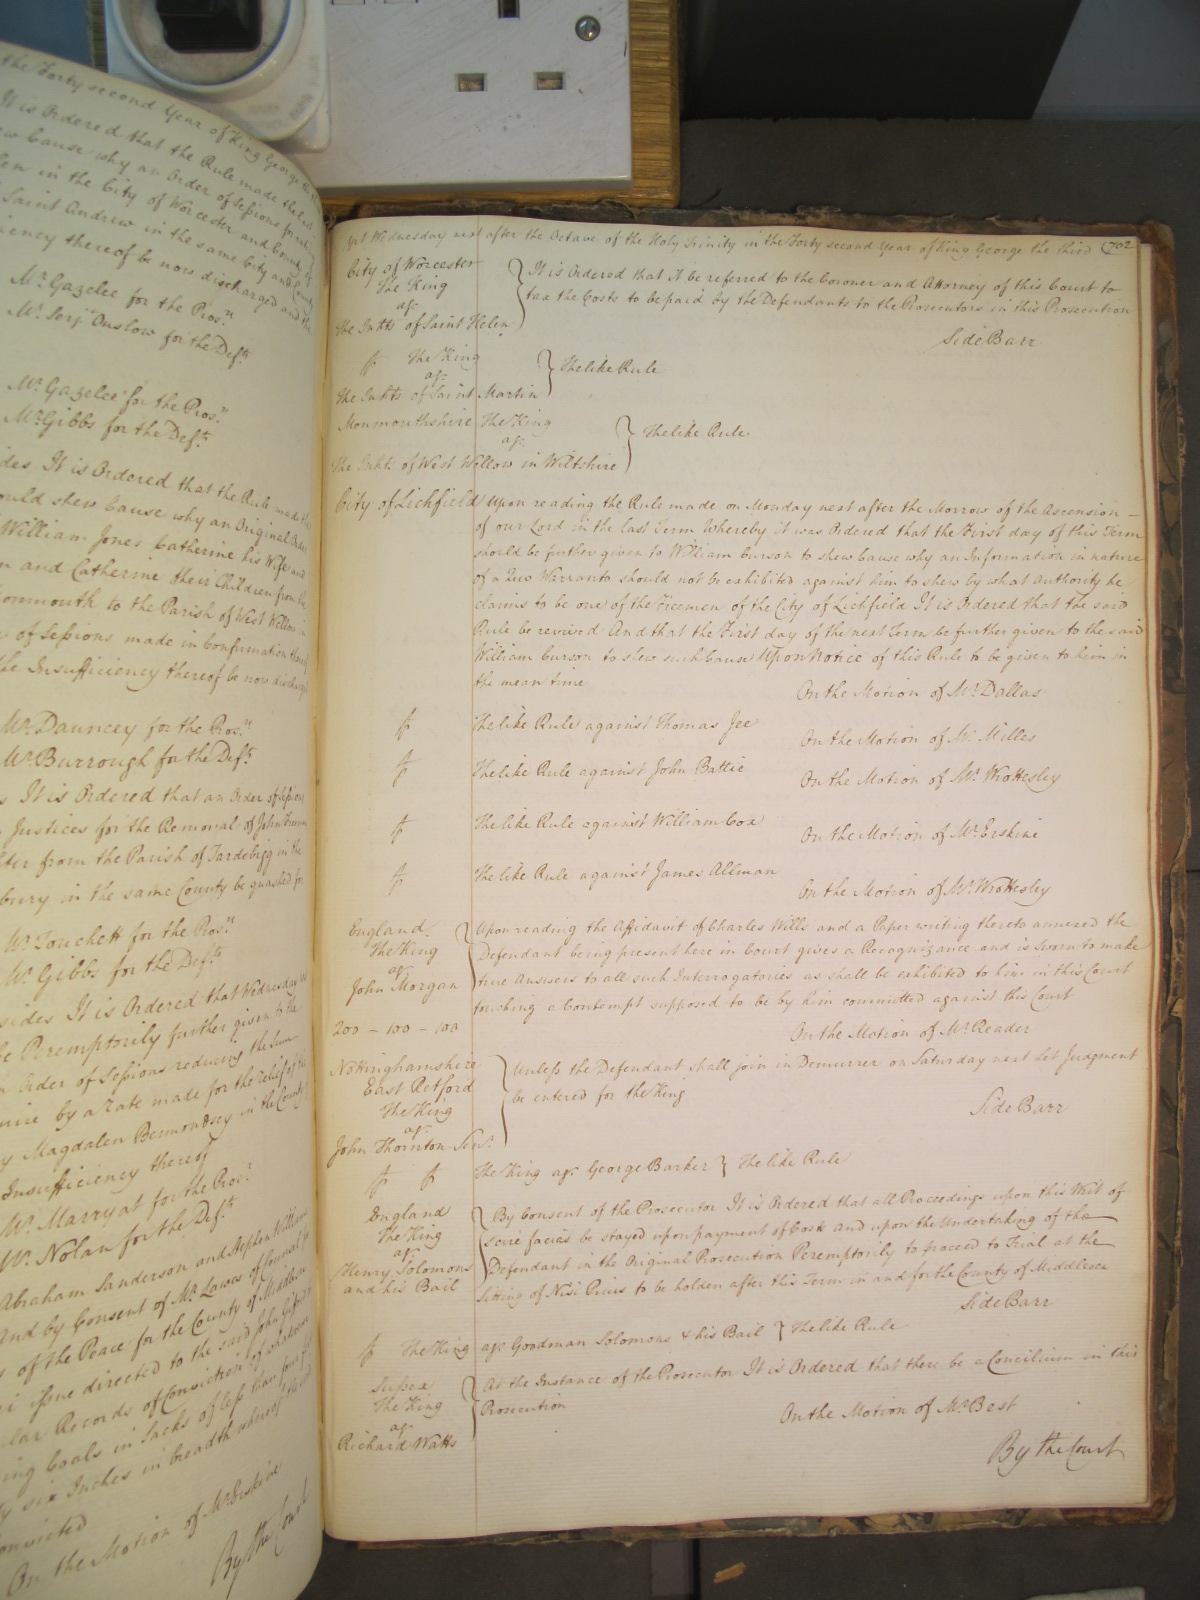 the Forty second Year of King George the
It is Ordered that the Rule made the last
Cause why an Order of Sessions for
in the City of Worcester and County of
Saint Andrew in the same City and County
thereof be now discharged and the
Mr. Gazelee for the Pros.rs
Mr. Serjt. Onslow for the Defts.
Mr. Gazelee for the Pros.rs
Mr. Gibbs for the Defts.
It is Ordered that the Rule made
should shew Cause why an Original Order
William Jones Catherine his Wife and
and Catherine their Children from the
Monmouth to the Parish of West Wellow in
of Sessions made in Confirmation thereof
the Insufficiency thereof be now discharged
Mr. Dauncey for the Pros.rs
Mr. Burrough for the Defts.
It is Ordered that an Order of Sessions
Justices for the Removal of John
from the Parish of Tardebigg in the
bury in the same County be quashed for
Mr. Touchett for the Pros.rs
Mr. Gibbs for the Defts.
sides It is Ordered that Wednesday
be Peremptorily further given to the
Order of Sessions reducing the Sum
by a rate made for the relief of the
Magdalen Bermondsey in the County
Insufficiency thereof
Mr. Marryat for the Pros.r
Mr. Nolan for the Deft.
Abraham Sanderson and Stephen Williams
And by Consent of Mr. Lawes of Counsel for
of the Peace for the County of Middlesex
issue directed to the said John
Records of Conviction of
Coals in Sacks of less than four
six Inches in breadth whereof
convicted
On the Motion of Mr. Erskine
By the Court
yet Wednesday next after the Octave of the Holy Trinity in the Forty second Year of King George the third (702
City of Worcester
The King
agt.
the Inhts. of Saint Helen
It is Ordered that it be referred to the Coroner and Attorney of this Court to
tax the Costs to be paid by the Defendants to the Prosecutors in this Prosecution
Side Barr
The King
agt.
the Inhts of Saint Martin
The like Rule
Monmouthshire The King
agt.
the Inhts. of West Wellow in Wiltshire
The like Rule
City of Lichfield Upon reading the Rule made on Monday next after the Morrow of the Ascension –
of our Lord in the last Term Whereby it was Ordered that the First day of this Term
should be further given to William Curson to shew Cause why an Information in nature
of a Quo Warranto should not be exhibited against him to shew by what Authority he
claims to be one of the Freemen of the City of Lichfield It is Ordered that the said
Rule be revived And that the First day of the next Term be further given to the said
William Curson to shew such Cause Upon Notice of this Rule to be given to him in
the mean time
On the Motion of Mr. Dallas
The like Rule against Thomas Jee
On the Motion of Mr. Milles
The like Rule against John Battie
On the Motion of Mr. Wrottesley
The like Rule against William Cox
On the Motion of Mr. Erskine
The like Rule against James Allman
On the Motion of Mr. Wrottesley
England
The King
agt.
John Morgan
200 – 100 – 100
Upon reading the Affidavit of Charles Wills and a Paper writing thereto annexed the
Defendant being present here in Court gives a Recognizance and is Sworn to make
true Answers to all such Interrogatories as shall be exhibited to him in this Court
touching a Contempt supposed to be by him committed against this Court
On the Motion of Mr. Reader
Nottinghamshire
East Retford
The King
agt.
John Thornton Senr.
Unless the Defendant shall join in Demurrer on Saturday next Let Judgment
be entered for the King
Side Barr
The King agt. George Barker } The like Rule
England
The King
agt.
Henry Solomons
and his Bail
By Consent of the Prosecutor It is Ordered that all Proceedings upon this Writ of
scire facias be stayed upon payment of Costs And upon the Undertaking of the
Defendant in the Original Prosecution Peremptorily to proceed to Trial at the
Sitting of Nisi Prius to be holden after this Term in and for the County of Middlesex
Side Barr
The King agt. Goodman Solomons & his Bail } The like Rule
Sussex
The King
agt.
Richard Watts
At the Instance of the Prosecutor It is Ordered that there be a Concilium in this
Prosecution
On the Motion of Mr. Best
By the Court